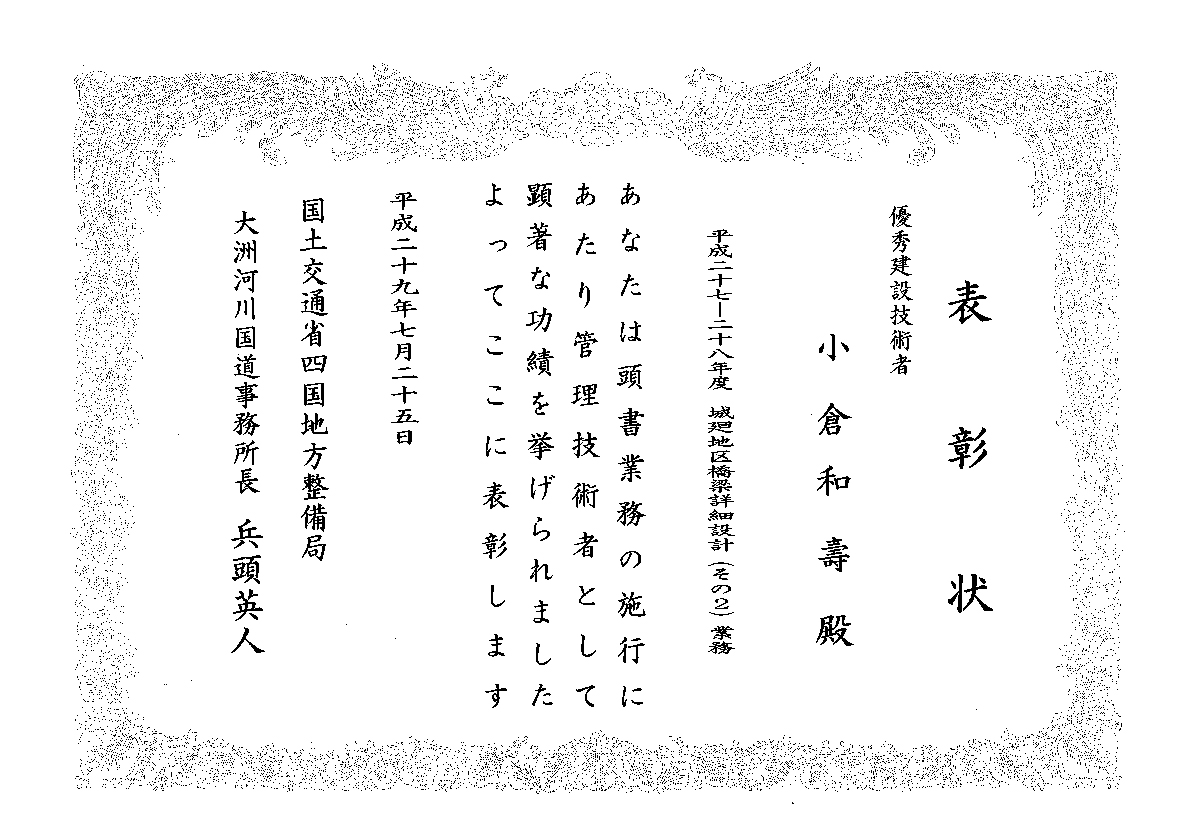 表彰状
優秀建設技術者
小倉和壽殿
平成二十七―二十八年度 城廻地区橋梁詳細設計(その2)業務
あなたは頭書業務の施行に
あたり管理技術者として
顕著な功績を挙げられました
よってここに表彰します
平成二十九年七月二十五日
国土交通省四国地方整備局
大洲河川国道事務所長 兵頭英人